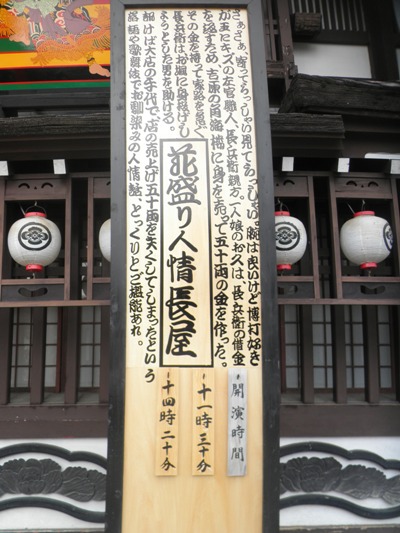 さぁさぁ、寄ってらっしゃい見てらっしゃい。腕は良いけど博打好き
が玉にキズの左官職人、長兵衛親方。一人娘のお久は、長兵衛の借金
を返すため、吉原の角海楼に身を売って五十両の金を作った。
その金を持って家路を急ぐ
長兵衛はお堀に身投げし
ようとした男を助ける。
花盛り人情長屋
聞けば大店の手代で、店の売上げ五十両を失くしてしまったという
落語や歌舞伎でお馴染みの人情話、とっくりとご堪能あれ。
開演時間
十一時三十分
十四時二十分